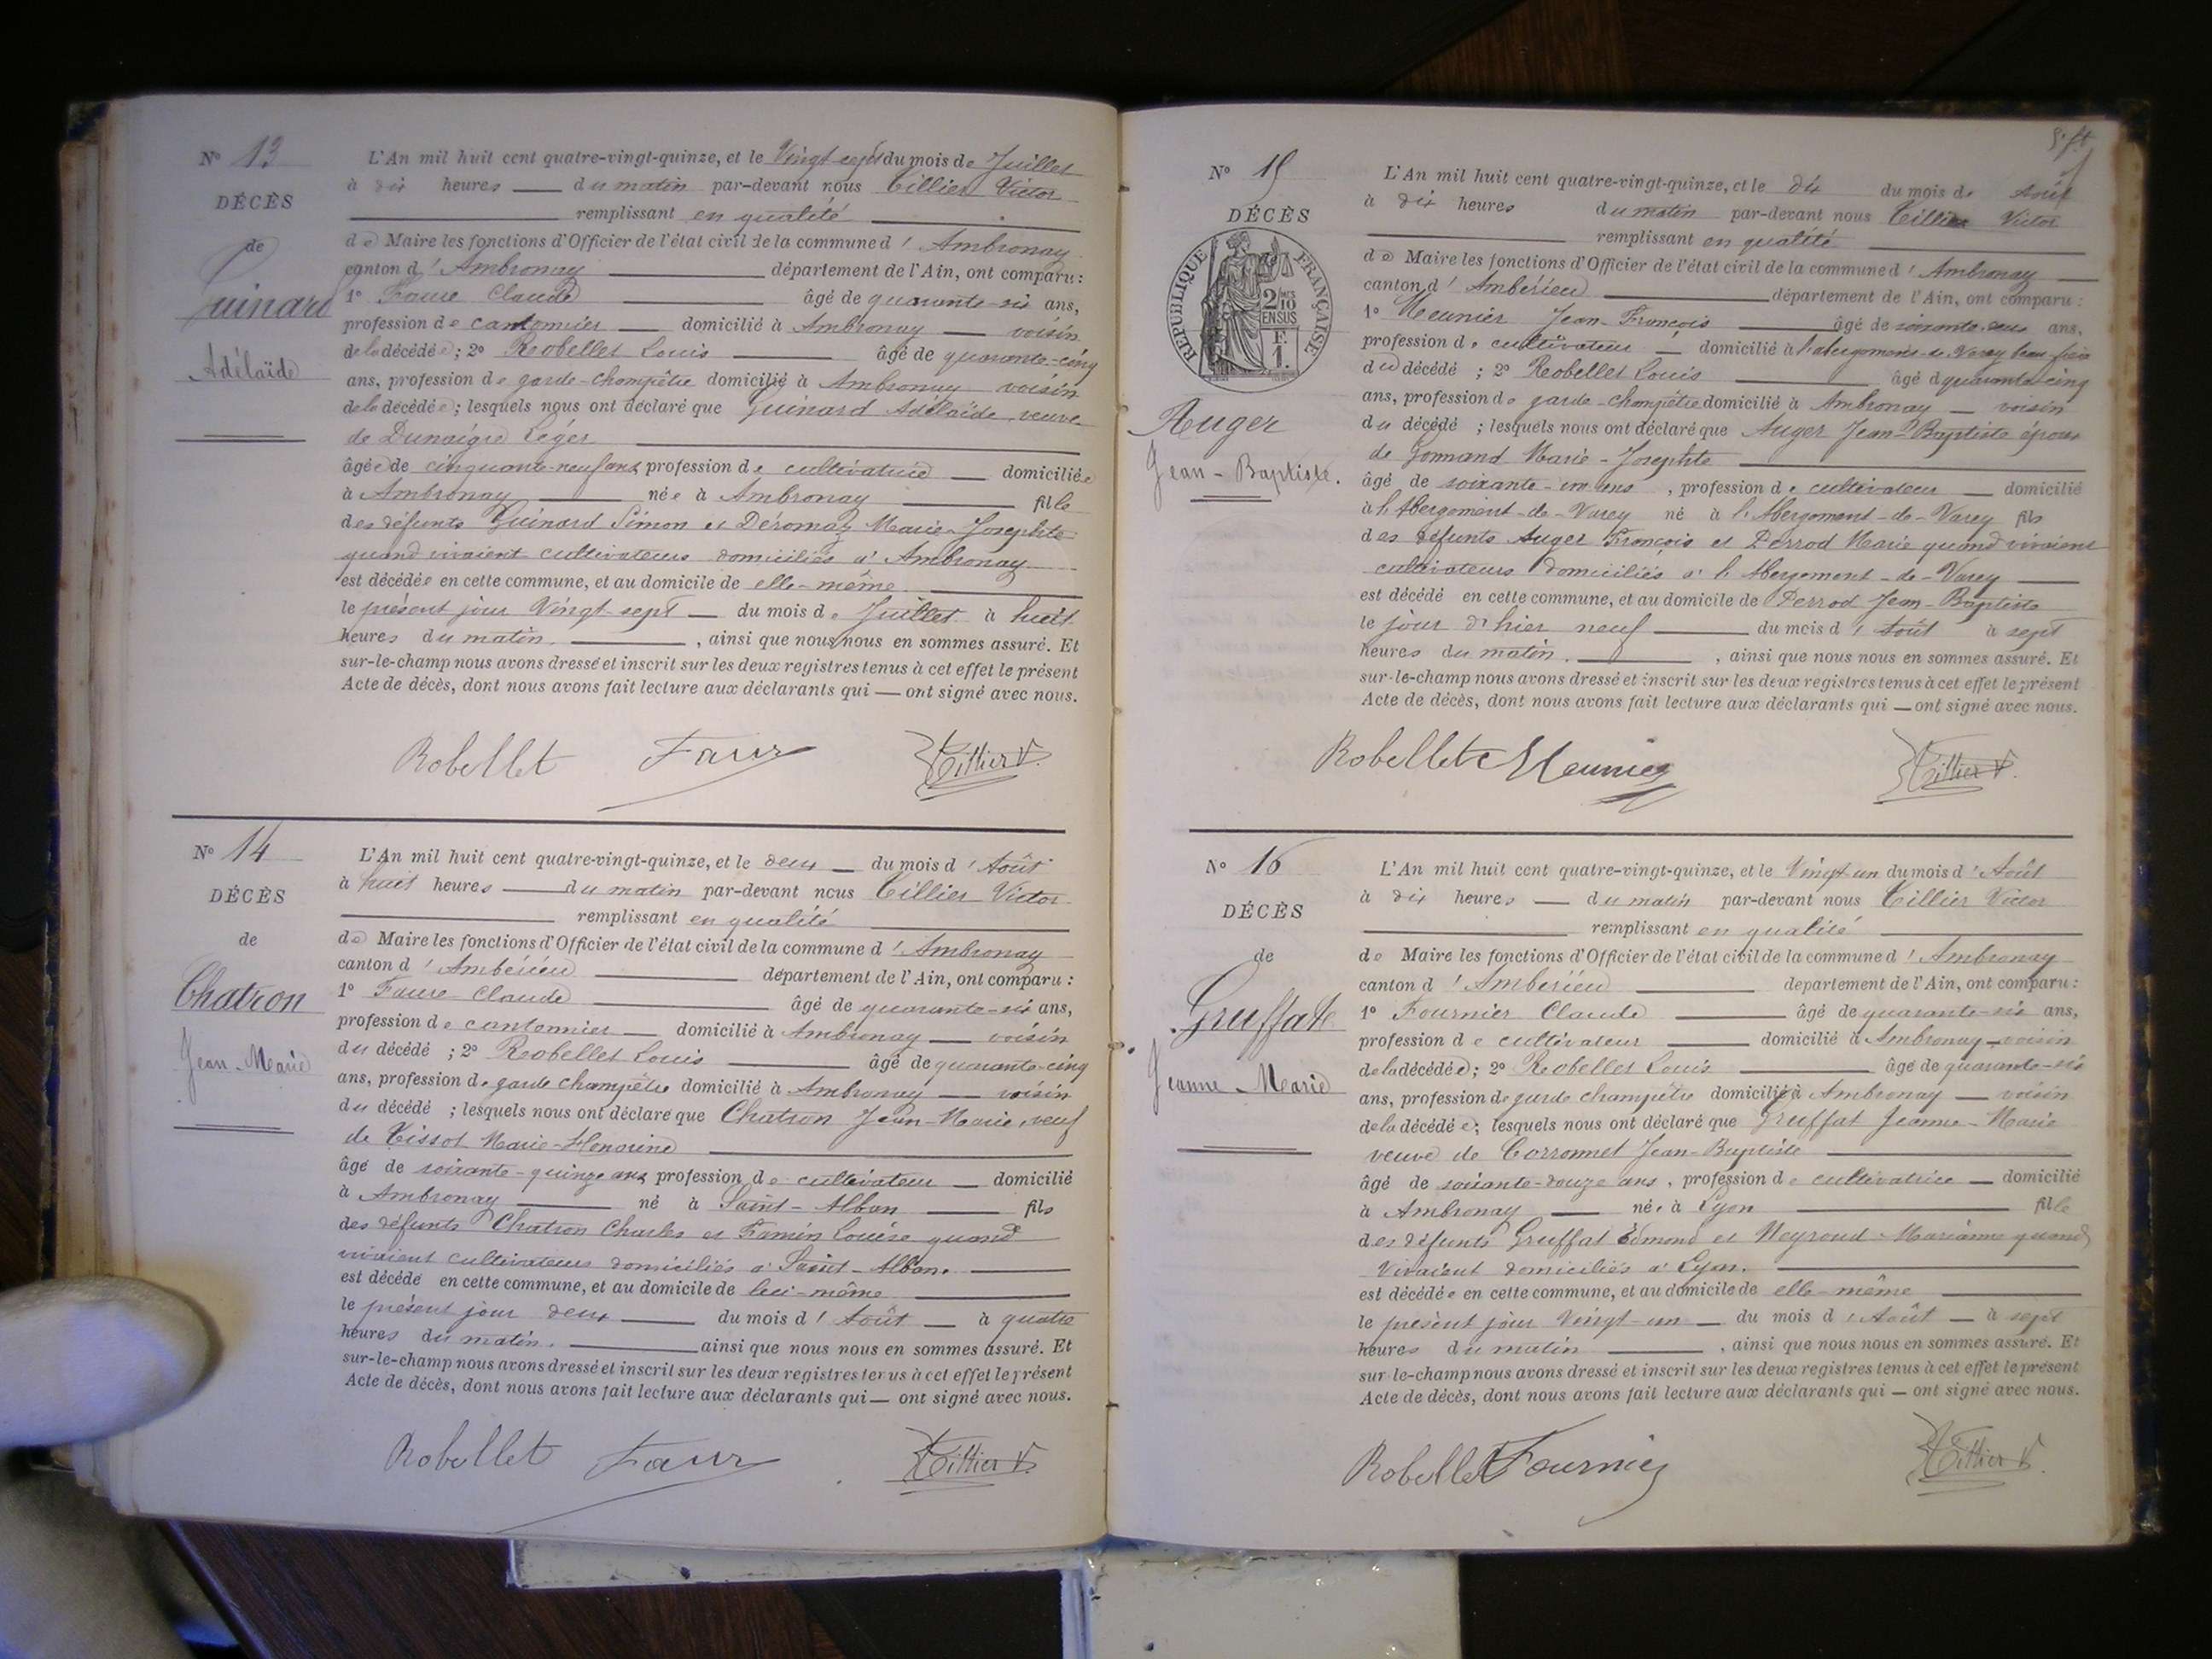 N° 13
DÉCÈS
de
Guinard
Adélaïde
L'An mil huit cent quatre-vingt-quinze, et le Vingt sept du mois de Juillet
à dix heures du matin par-devant nous Tillier Victor
remplissant en qualité
de Maire les fonctions d'Officier de l'état civil de la commune d'Ambronay
canton d'Ambronay département de l'Ain, ont comparu :
1° Faure Claude âgé de quarante-six ans,
profession de cantonnier domicilié à Ambronay voisin
de la décédée ; 2° Robellet Louis âgé de quarante-cinq
ans, profession de garde-champêtre domicilié à Ambronay voisin
de la décédée ; lesquels nous ont déclaré que Guinard Adélaïde veuve
de Dunaigre Léger
âgée de cinquante-neuf ans profession de cultivatrice domiciliée
à Ambronay née à Ambronay fille
des défunts Guinard Simon et Déromaz Marie-Josephte
quand vivaient cultivateurs domiciliés à Ambronay
est décédée en cette commune, et au domicile de elle-même
le présent jour Vingt-sept du mois de Juillet à huit
heures du matin, ainsi que nous nous en sommes assuré. Et
sur-le-champ nous avons dressé et inscrit sur les deux registres tenus à cet effet le présent
Acte de décès, dont nous avons fait lecture aux déclarants qui — ont signé avec nous.
Robellet Faur Tillier V.
N° 14
DÉCÈS
de
Chatron
Jean-Marie
L'An mil huit cent quatre-vingt-quinze, et le deux du mois d'Août
à huit heures du matin par-devant nous Tillier Victor
remplissant en qualité
de Maire les fonctions d'Officier de l'état civil de la commune d'Ambronay
canton d'Ambérieu département de l'Ain, ont comparu :
1° Faure Claude âgé de quarante-six ans,
profession de cantonnier domicilié à Ambronay voisin
du décédé ; 2° Robellet Louis âgé de quarante-cinq
ans, profession de garde champêtre domicilié à Ambronay voisin
du décédé ; lesquels nous ont déclaré que Chatron Jean-Marie, veuf
de Tissot Marie-Honorine
âgé de soixante-quinze ans profession de cultivateur domicilié
à Ambronay né à Saint-Alban fils
des défunts Chatron Charles et Famin Louise quand
vivaient cultivateurs domiciliés à Saint-Alban.
est décédé en cette commune, et au domicile de lui-même
le présent jour deux du mois d'Août à quatre
heures du matin, ainsi que nous nous en sommes assuré. Et
sur-le-champ nous avons dressé et inscrit sur les deux registres tenus à cet effet le présent
Acte de décès, dont nous avons fait lecture aux déclarants qui — ont signé avec nous.
Robellet Faur Tillier V.
N° 15
DÉCÈS
RÉPUBLIQUE FRANÇAISE
2/10 EN SUS
F.
1.
Auger
Jean-Baptiste.
L'An mil huit cent quatre-vingt-quinze, et le dix du mois de Août
à dix heures du matin par-devant nous Tillier Victor
remplissant en qualité
de Maire les fonctions d'Officier de l'état civil de la commune d'Ambronay
canton d'Ambérieu département de l'Ain, ont comparu :
1° Meunier Jean-François âgé de ans,
profession de cultivateur domicilié à l'abergement-de-Varey beau-frère
du décédé ; 2° Robellet Louis âgé de quarante-cinq
ans, profession de garde-champêtre domicilié à Ambronay voisin
du décédé ; lesquels nous ont déclaré que Auger Jean-Baptiste époux
de Gonnand Marie-Josephte
âgé de soixante-un ans, profession de cultivateur domicilié
à l'Abergement-de-Varey né à l'Abergement-de-Varey fils
des défunts Auger François et Perrod Marie quand vivaient
cultivateurs domiciliés à l'Abergement-de-Varey
est décédé en cette commune, et au domicile de Perrod Jean-Baptiste
le jour d'hier neuf du mois d'Août à sept
heures du matin, ainsi que nous nous en sommes assuré. Et
sur-le-champ nous avons dressé et inscrit sur les deux registres tenus à cet effet le présent
Acte de décès, dont nous avons fait lecture aux déclarants qui — ont signé avec nous.
Robellet Meunier Tillier V.
N° 16
DÉCÈS
de
Gruffat
Jeanne-Marie
L'An mil huit cent quatre-vingt-quinze, et le Vingt-un du mois d'Août
à dix heures du matin par-devant nous Tillier Victor
remplissant en qualité
de Maire les fonctions d'Officier de l'état civil de la commune d'Ambronay
canton d'Ambérieu département de l'Ain, ont comparu :
1° Fournier Claude âgé de quarante-six ans,
profession de cultivateur domicilié à Ambronay voisin
de la décédée ; 2° Robellet Louis âgé de quarante-six
ans, profession de garde champêtre domicilié à Ambronay voisin
de la décédée ; lesquels nous ont déclaré que Gruffat Jeanne-Marie
veuve de Corronnet Jean-Baptiste
âgé de soixante-douze ans, profession de cultivatrice domicilié
à Ambronay née à Lyon fille
des défunts Gruffat Edmond et Neyroud Marianne quand
Vivaient domiciliés à Lyon.
est décédée en cette commune, et au domicile de elle-même
le présent jour Vingt-un du mois d'Août à sept
heures du matin, ainsi que nous nous en sommes assuré. Et
sur-le-champ nous avons dressé et inscrit sur les deux registres tenus à cet effet le présent
Acte de décès, dont nous avons fait lecture aux déclarants qui — ont signé avec nous.
Robellet Fournier Tillier V.